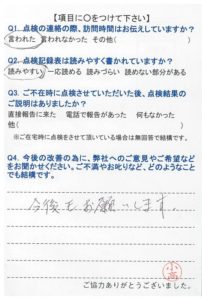 【項目に○をつけて下さい】
Q1. 点検の連絡の際、訪問時間はお伝えしていますか?
言われた 言われなかった その他( )
Q2. 点検記録表は読みやすく書かれていますか?
読みやすい 一応読める 読みづらい 読めない部分がある
Q3. ご不在時に点検させていただいた後、点検結果の
ご説明はありましたか?
直接報告に来た 電話で報告があった 何もなかった
他( )
※ご在宅時に点検をさせて頂いている場合は無回答で結構です。
Q4. 今後の改善の為に、弊社へのご意見やご希望など
をお聞かせください。ご不満やお叱りなど、どのようなこと
でも結構です。
今後もお願いします。
小高
ご協力ありがとうございました。